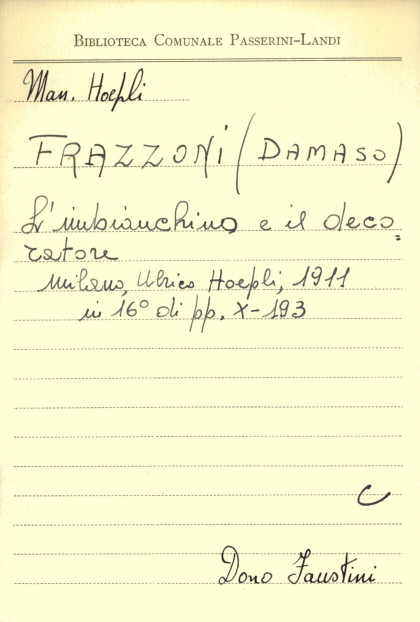 BIBLIOTECA COMUNALE PASSERINI-LANDI
Man. Hoepli
FRAZZONI (DAMASO)
L'imbianchino e il deco=
ratore
Milano, Ulrico Hoepli, 1911
in 16° di pp. X-193
C
Dono Faustini